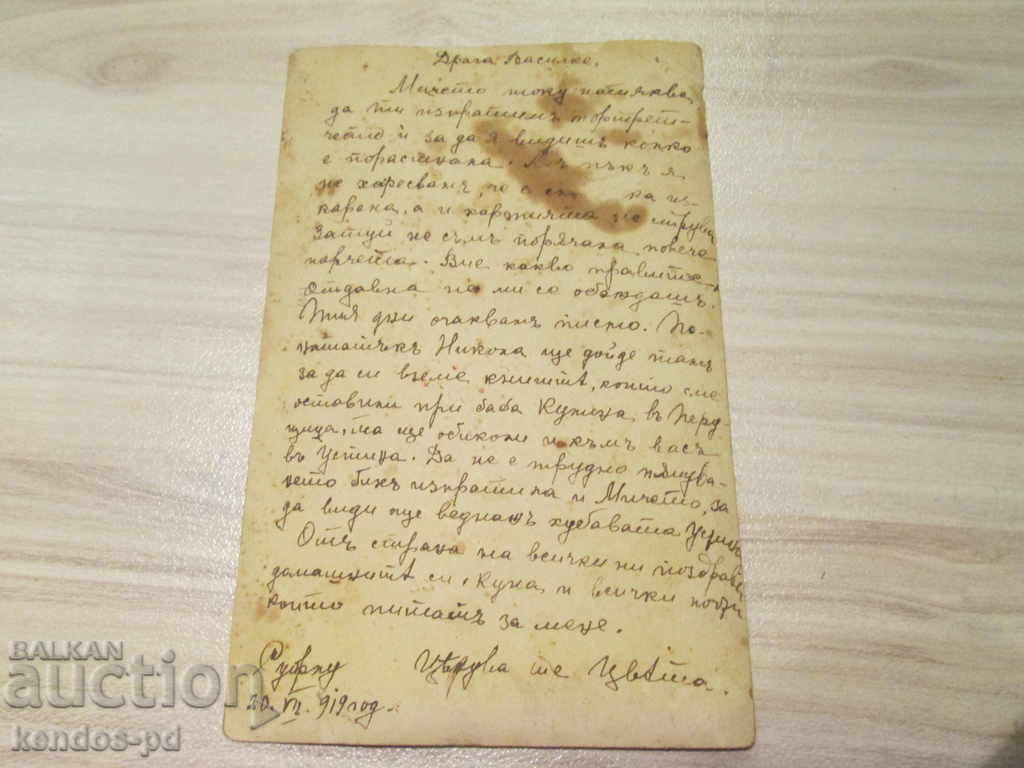 Драга Василке,
Мичето току натяква
да ти изпратимъ портрет-
чето ѝ за да я видишъ колко
е пораснала. Азъ пъкъ я
не харесвамъ, че е из-
карана, а и хартията не струва
Затуй не съмъ поръчала повече
парчета. Вие какво правите
Отдавна не ми се обаждашъ.
Тия дни очаквамъ писмо. По-
Никола ще дойде тамъ
за да си вземе книгитѣ, които сме
оставили при баба Куница въ Перу
щица, та ще обиколи и къмъ васъ
въ Устина. Да не е трудно пѫтува-
нето бихъ изпратила и Мичето, за
да види още веднажъ хубавата Устина
Отъ страна на всички ни поздрави
домашнитѣ си, Куна и всички
които питатъ за мене.
Суфлу Цѣлува те Цвѣта.
20. VII. 919 год.
BALKAN
auction
kendos-pd